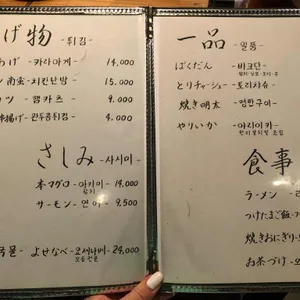 げ物 - 튀김 -
あげ - 카라아게 - 14,000
ン南蛮 - 치킨난방 - 15,000
カツ - 햄카츠 - 9,000
揚げ - 완두콩튀김 - 4,000
さしみ - 사시미 -
本マグロ - 아카미 - 19,000
サーモン - 연어 - 9,500
よせなべ - 요세나베 - 24,000
모듬전골
一品 - 일품 -
ばくだん - 바쿠단 -
とりチャーシュー - 토리차슈 -
焼き明太 - 명란구이 -
やりいか - 야리이카 -
食事
ラーメン -
つけたまご飯 -
焼きおにぎり -
お茶づけ -